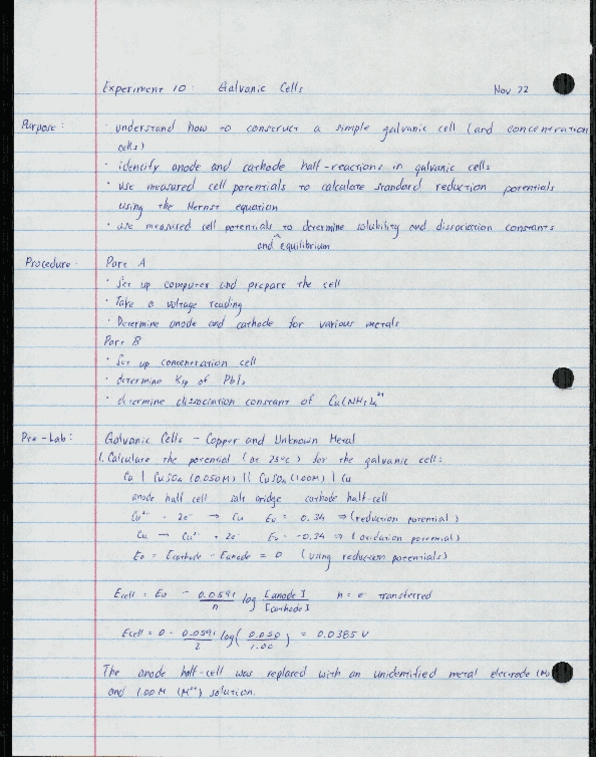 Experiment 10: Galvanic Cells Nov 22
Purpose: · understand how to construct a simple galvanic cell (and concentration
cells)
· identify anode and cathode half-reactions in galvanic cells
· use measured cell potentials to calculate standard reduction potentials
using the Nernst equation
· use measured cell potentials to determine solubility and dissociation constants
and equilibrium
Procedure: Part A
· Set up computer and prepare the cell
· Take a voltage reading
· Determine anode and cathode for various metals
Part B
· Set up concentration cell
· determine Ksp of PbI₂
· determine dissociation constant of Cu(NH₃)₄²⁺
Pre-Lab: Galvanic Cells - Copper and Unknown Metal
1. Calculate the potential (at 25°C) for the galvanic cell:
Cu | CuSO₄ (0.050M) || CuSO₄ (1.00M) | Cu
anode half cell salt bridge cathode half-cell
Cu²⁺ + 2e⁻ → Cu E₀ = 0.34 ⇒ (reduction potential)
Cu → Cu²⁺ + 2e⁻ E₀ = -0.34 ⇒ (oxidation potential)
E₀ = Ecathode - Eanode = 0 (using reduction potentials)
Ecell = E₀ - 0.0591/n log [anode]/[cathode] n = e⁻ transferred
Ecell = 0 - 0.0591/2 log(0.050/1.00) = 0.0385 V
The anode half-cell was replaced with an unidentified metal electrode
and 1.00M (M²⁺) solution.